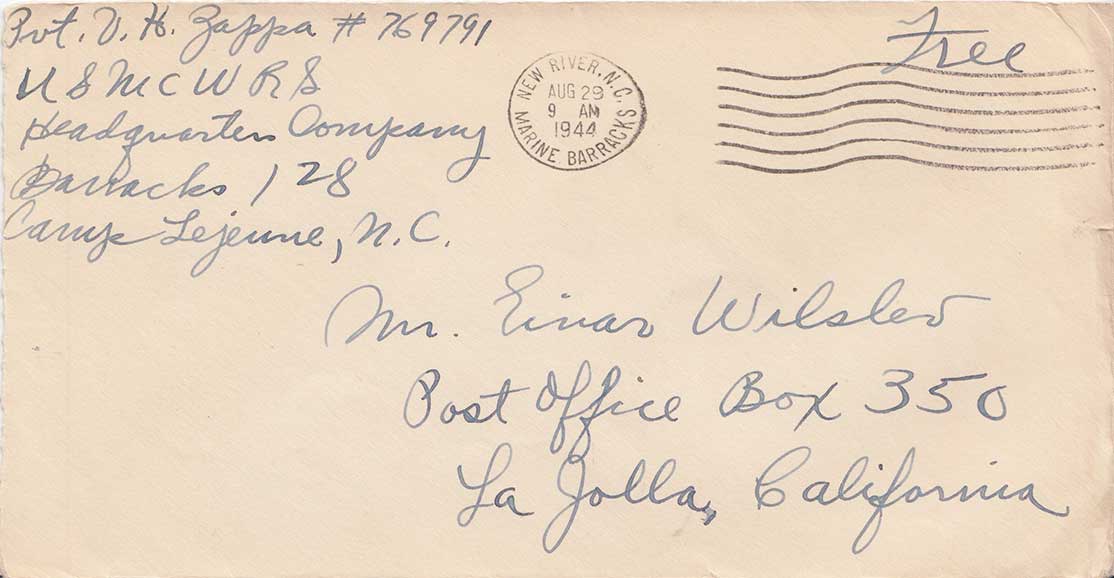 Pvt. V. H. Zappa # 769791
U S M C W R S
Headquarters Company
Barracks 128
Camp Lejeune, N.C.
NEW RIVER, N.C.
AUG 29
9 AM
1944
MARINE BARRACKS
Free
Mr. Einar Wilslev
Post Office Box 350
La Jolla, California